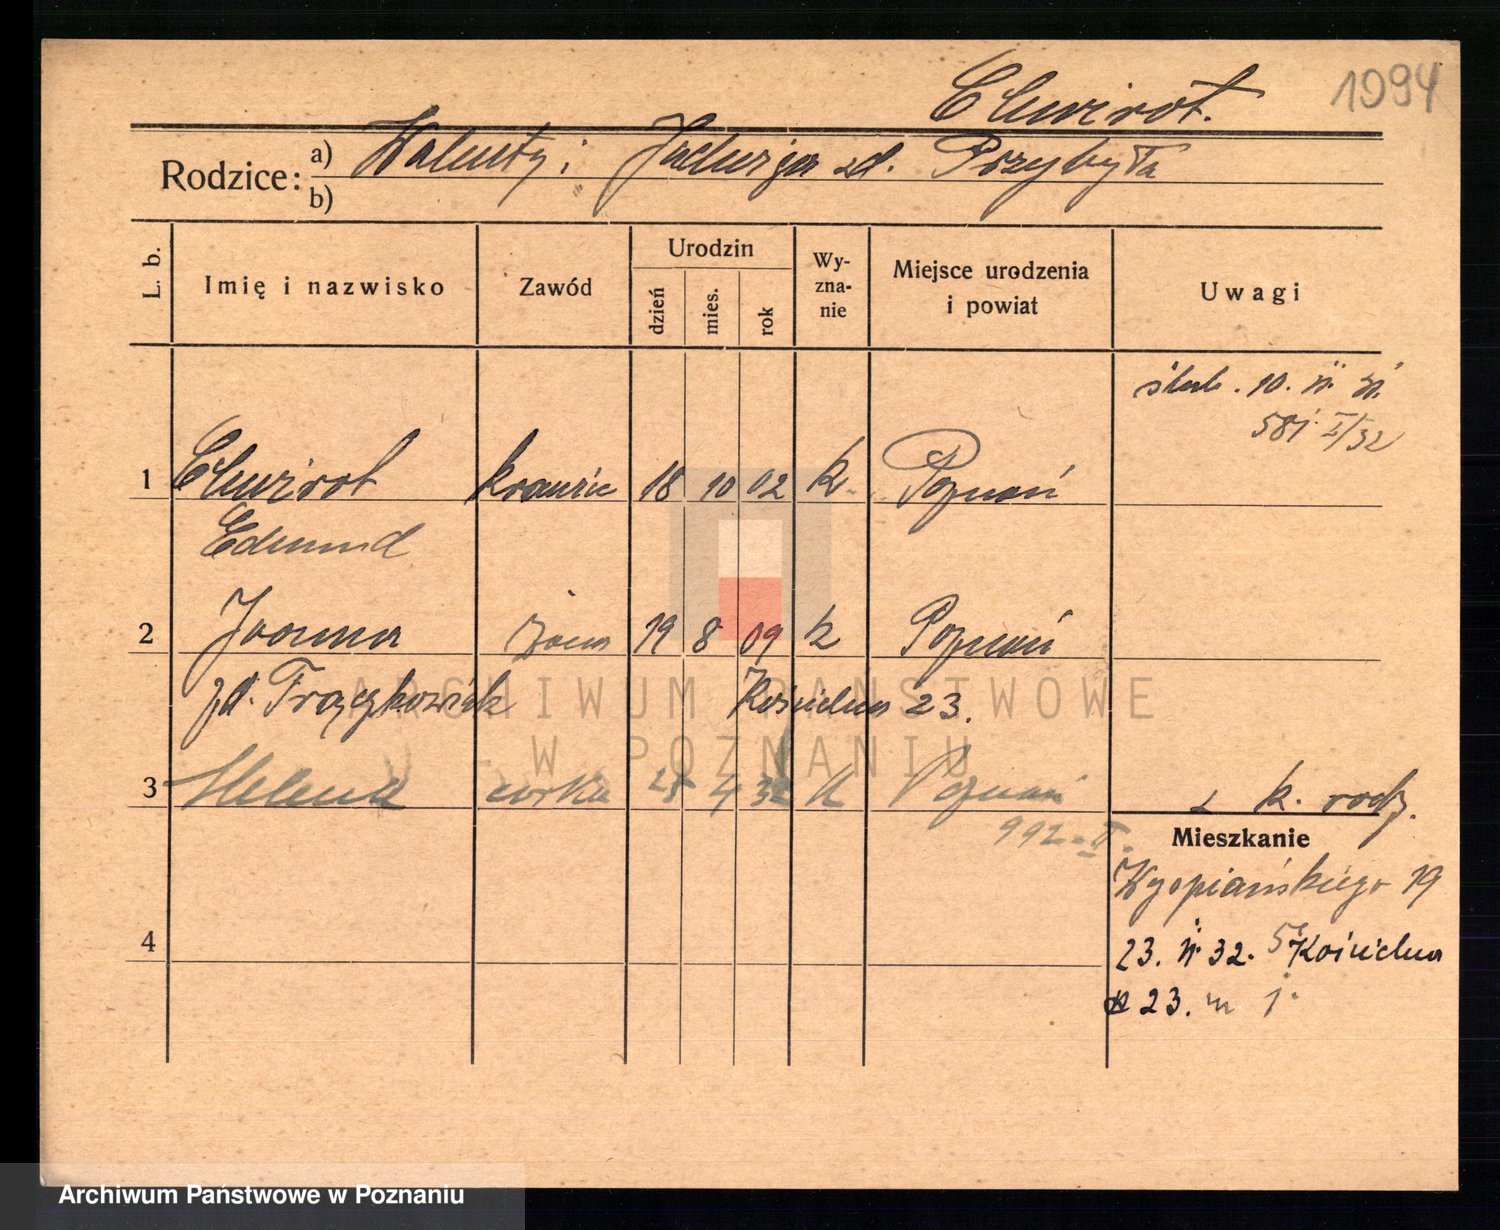 Chwirot.
1994
Rodzice: a) Walenty i Jadwiga zd. Przybyła
b)
L. b.
Imię i nazwisko
Zawód
Urodzin
dzień
mies.
rok
Wy-
zna-
nie
Miejsce urodzenia
i powiat
Uwagi
ślub. 10.
581 I/32
1 Chwirot krawiec 18 10 02 k. Poznań
Edmund
2 Joanna żona 19 8 09 k Poznań
zd. Frączkowiak Kościelna 23.
3 Helena córka 4 32 k Poznań
992-II.
z k. rodz.
Mieszkanie
Wyspiańskiego 19
4
23. 32. Kościelna
23. m 1.
ARCHIWUM PAŃSTWOWE
W POZNANIU
Archiwum Państwowe w Poznaniu